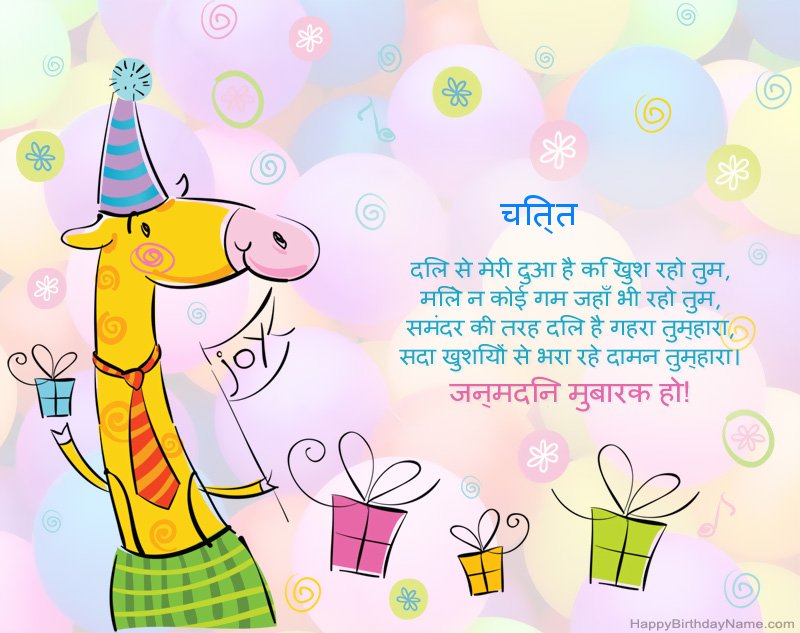 चित्त
दिल से मेरी दुआ है कि खुश रहो तुम,
मिले न कोई गम जहाँ भी रहो तुम,
समंदर की तरह दिल है गहरा तुम्हारा,
सदा खुशियों से भरा रहे दामन तुम्हारा।
जन्मदिन मुबारक हो!
joy
HappyBirthdayName.com